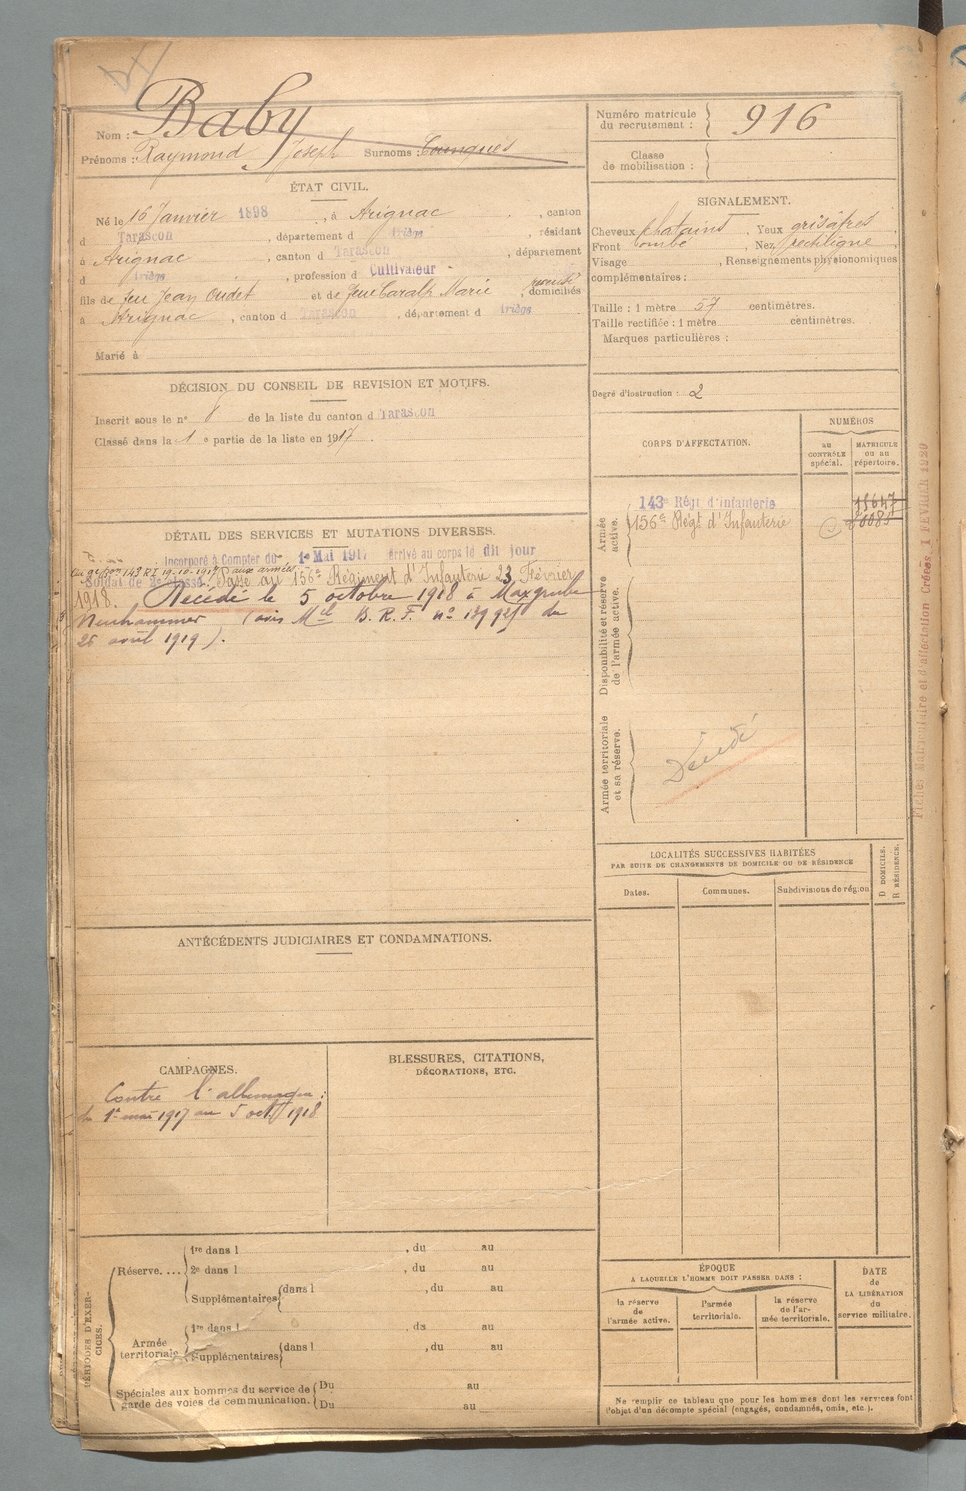 Nom : Baby
Prénoms : Raymond Joseph Surnoms :
Numéro matricule
du recrutement : 916
Classe
de mobilisation :
ÉTAT CIVIL.
Né le 16 Janvier 1898, à Arignac, canton
d Tarascon, département d Ariège, résidant
à Arignac, canton d Tarascon, département
d Ariège, profession d Cultivateur
fils de feu Jean Oudet et de feue Caralp Marie, domiciliés
à Arignac, canton d Tarascon, département d Ariège
Marié à
SIGNALEMENT.
Cheveux chatains, Yeux
Front bombé, Nez rectiligne,
Visage, Renseignements physionomiques
complémentaires :
Taille : 1 mètre 57 centimètres.
Taille rectifiée : 1 mètre centimètres.
Marques particulières :
Degré d'instruction : 2
DÉCISION DU CONSEIL DE REVISION ET MOTIFS.
Inscrit sous le n° 8 de la liste du canton d Tarascon
Classé dans la 1e partie de la liste en 1917.
CORPS D'AFFECTATION.
NUMÉROS
AU
CONTRÔLE
spécial.
MATRICULE
ou au
répertoire.
Armée
active.
143e Régt d'infanterie
156e Régt d'Infanterie
15647
Disponibilité et réserve
de l'armée active.
Armée territoriale
et sa réserve.
Décédé
DÉTAIL DES SERVICES ET MUTATIONS DIVERSES.
Incorporé à Compter du 1er Mai 1917 arrivé au corps le dit jour
143 RI 19-10-1917 aux armées
Soldat de 2e classe. Passé au 156e Régiment d'Infanterie 23 Février
1918. Décédé le 5 octobre 1918 à Maxgrube
Neuhammer, (avis Mel B. R. F. n° du
26 avril 1919).
Fiches Matriculaire et d'affectation Créées 1 FEVRIER 1920
LOCALITÉS SUCCESSIVES HABITÉES
PAR SUITE DE CHANGEMENTS DE DOMICILE OU DE RÉSIDENCE
Dates. Communes. Subdivisions de région
D DOMICILE.
R RÉSIDENCE.
ANTÉCÉDENTS JUDICIAIRES ET CONDAMNATIONS.
CAMPAGNES.
Contre l'allemagne :
du 1er mai 1917 au 5 oct. 1918
BLESSURES, CITATIONS,
DÉCORATIONS, ETC.
PÉRIODES D'EXER-
CICES.
Réserve....
1re dans l , du au
2e dans l , du au
Supplémentaires dans l , du au
Armée
territoriale
1re dans l , du au
Supplémentaires dans l , du au
Spéciales aux hommes du service de
garde des voies de communication.
Du au
Du au
ÉPOQUE
A LAQUELLE L'HOMME DOIT PASSER DANS :
la réserve
de
l'armée active.
l'armée
territoriale.
la réserve
de l'ar-
mée territoriale.
DATE
de
LA LIBÉRATION
du
service militaire.
Ne remplir ce tableau que pour les hommes dont les services font
l'objet d'un décompte spécial (engagés, condamnés, omis, etc.).